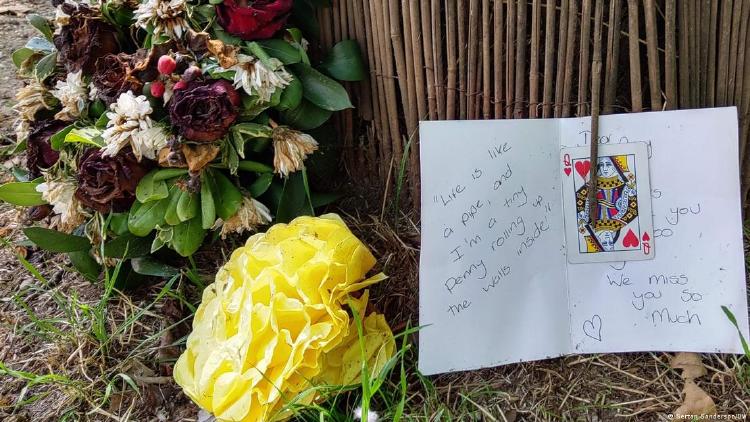 "Life is like
a pipe, and
I'm a tiny
Penny rolling up
the walls inside"
you
We miss
you so
Much
Q
Q
© Sertan Sanderson/DW